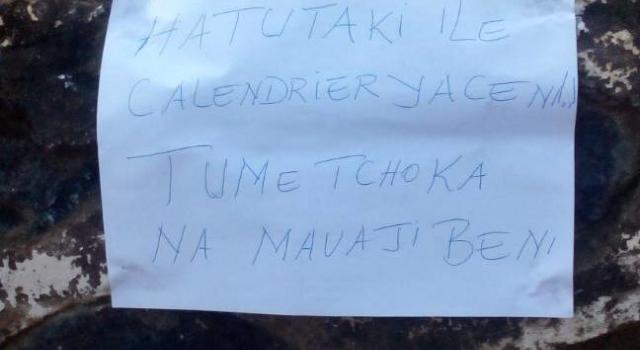 HATUTAKI ILE
CALENDRIER YA CENI
TUMETCHOKA
NA MAUAJI BENI